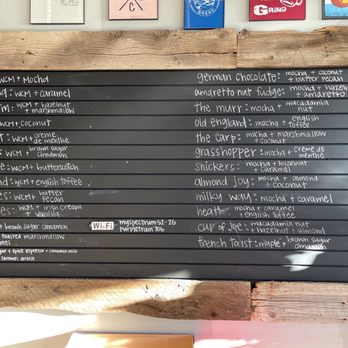 GRIND
WCM + MOCHA
WCM + caramel
WCM + hazelnut
+ marshmallow
WCM + coconut
WCM + creme
de menthe
WCM + brown sugar
cinnamon
WCM + butterscotch
WCM + english toffee
WCM + butter
pecan
WCM + irish cream
+ vanilla
+ brown sugar cinnamon
toasted marshmallow
caramel
Wi-Fi
myspectrum92-2G
purpletrain706
german chocolate: mocha + coconut
+ butter pecan
amaretto nut fudge: mocha + hazelnut
+ amaretto
the murr: mocha + macadamia
nut
old england: mocha + english
toffee
the carp: mocha + marshmallow
+ coconut
grasshopper: mocha + creme de
menthe
snickers: mocha + hazelnut
+ caramel
almond joy: mocha + almond
+ coconut
milky way: mocha + caramel
heath: mocha + caramel
+ english toffee
cup of joe: mocha + macadamia nut
+ hazelnut + almond
french toast: maple + brown sugar
cinnamon